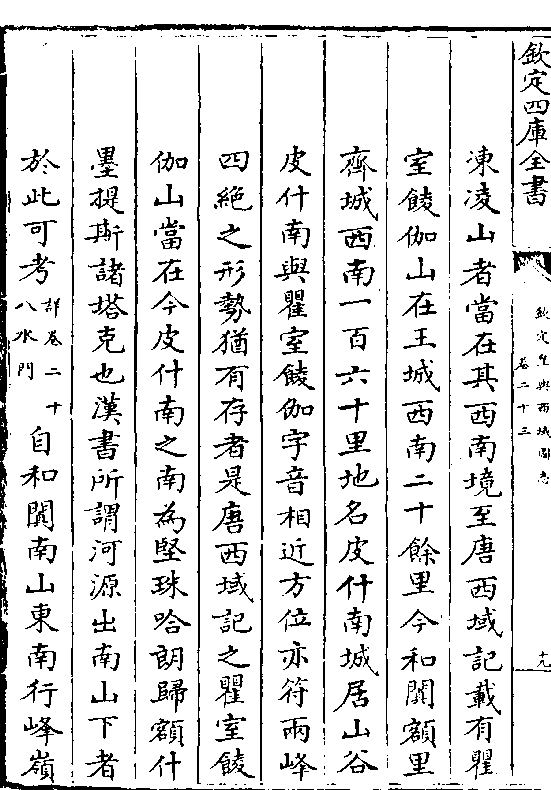 欽定四庫全書
欽定皇輿西域圖志
卷二十三
十九
凍凌山者當在其西南境至唐西域記載有瞿
室餕伽山在王城西南二十餘里今和闐額里
齊城西南一百六十里地名皮什南城居山谷
皮什南與瞿室餕伽字音相近方位亦符兩峰
四絶之形勢猶有存者是唐西域記之瞿室餕
伽山當在今皮什南之南為堅珠哈朗歸額什
墨提斯諸塔克也漢書所謂河源出南山下者
於此可考詳卷二十八水門自和闐南山東南行峰嶺